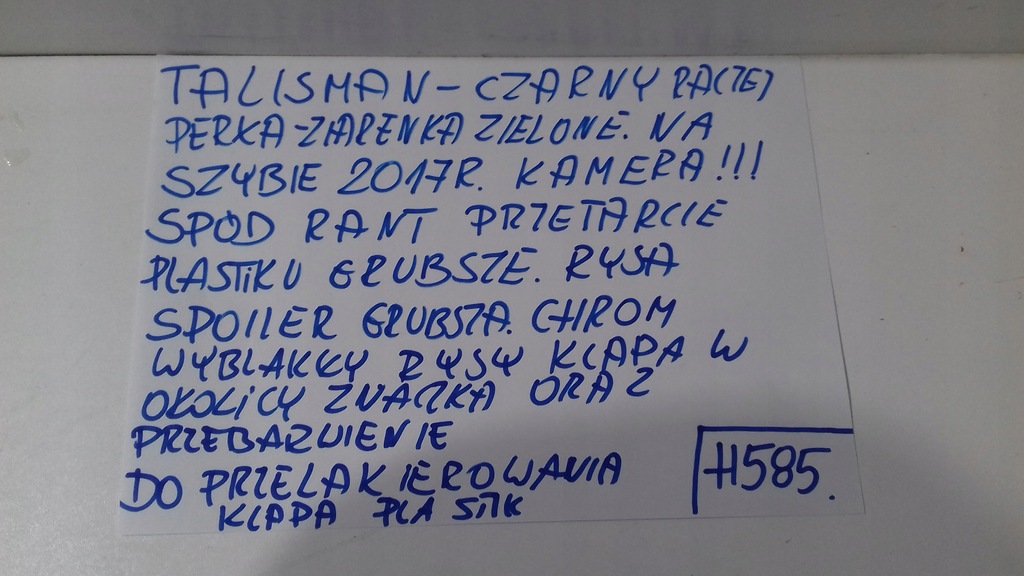 TALISMAN - CZARNY RACZEJ
PERKA-ZIARENKA ZIELONE. NA
SZYBIE 2017R. KAMERA!!!
SPÓD RANT PRZETARCIE
PLASTIKU GRUBSZE. RYSA
SPOILER GRUBSZA. CHROM
WYBLAKŁY RYSY KLAPA W
OKOLICY ZNACZKA ORAZ
PRZEBARWIENIE
DO PRZELAKIEROWANIA
KLAPA PLASTIK
H585.